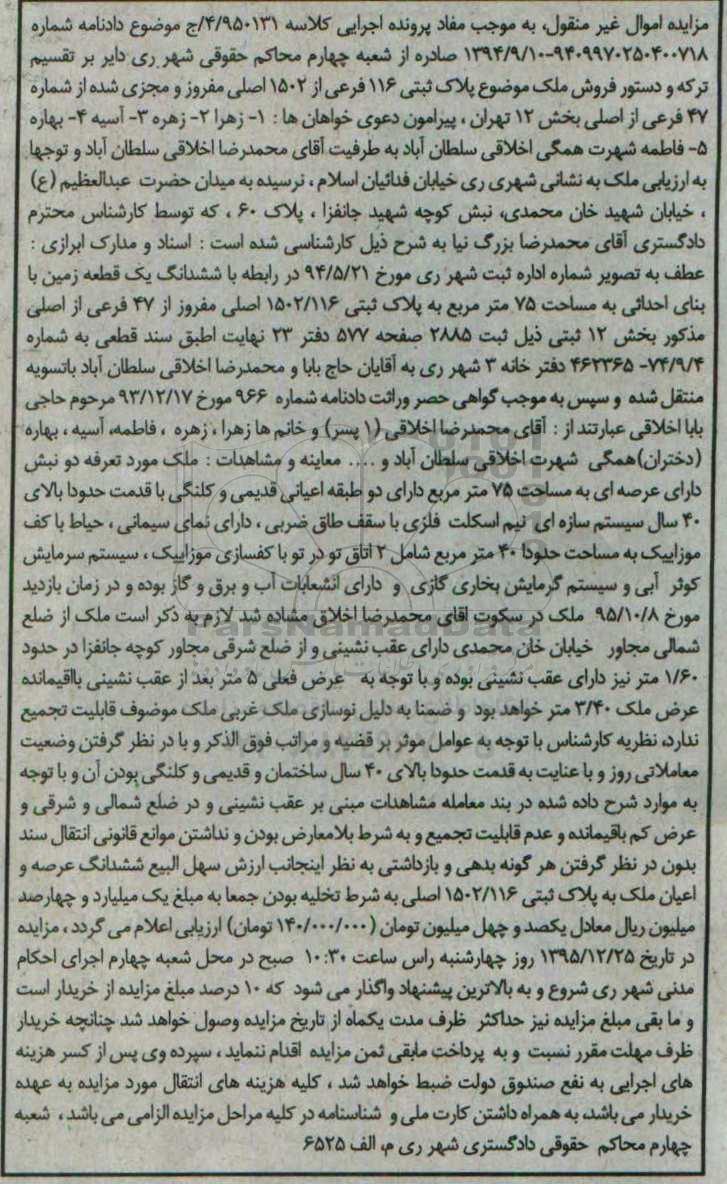 مزایده اموال غیر منقول، به موجب مفاد پرونده اجرایی کلاسه ۴/۹۵۰۱۳۱/ج موضوع دادنامه شماره
۹۴۰۹۹۷۰۲۵۰۴۰۰۷۱۸-۱۳۹۴/۹/۱۰ صادره از شعبه چهارم محاکم حقوقی شهر ری دایر بر تقسیم
ترکه و دستور فروش ملک موضوع پلاک ثبتی ۱۱۶ فرعی از ۱۵۰۲ اصلی مفروز و مجزی شده از شماره
۴۷ فرعی از اصلی بخش ۱۲ تهران ، پیرامون دعوی خواهان ها : ۱- زهرا ۲- زهره ۳- آسیه ۴- بهاره
۵- فاطمه شهرت همگی اخلاقی سلطان آباد به طرفیت آقای محمدرضا اخلاقی سلطان آباد و توجها
به ارزیابی ملک به نشانی شهری ری خیابان فدائیان اسلام ، نرسیده به میدان حضرت عبدالعظیم (ع)
، خیابان شهید خان محمدی، نبش کوچه شهید جانفزا ، پلاک ۶۰ ، که توسط کارشناس محترم
دادگستری آقای محمدرضا بزرگ نیا به شرح ذیل کارشناسی شده است : اسناد و مدارک ابرازی :
عطف به تصویر شماره اداره ثبت شهر ری مورخ ۹۴/۵/۲۱ در رابطه با ششدانگ یک قطعه زمین با
بنای احداثی به مساحت ۷۵ متر مربع به پلاک ثبتی ۱۵۰۲/۱۱۶ اصلی مفروز از ۴۷ فرعی از اصلی
مذکور بخش ۱۲ ثبتی ذیل ثبت ۲۸۸۵ صفحه ۵۷۷ دفتر ۲۳ نهایت اطبق سند قطعی به شماره
۷۴/۹/۴- ۴۶۲۳۶۵ دفتر خانه ۳ شهر ری به آقایان حاج بابا و محمدرضا اخلاقی سلطان آباد باتسویه
منتقل شده و سپس به موجب گواهی حصر وراثت دادنامه شماره ۹۶۶ مورخ ۹۳/۱۲/۱۷ مرحوم حاجی
بابا اخلاقی عبارتند از : آقای محمدرضا اخلاقی (۱ پسر) و خانم ها زهرا ، زهره ، فاطمه، آسیه ، بهاره
(دختران)همگی شهرت اخلاقی سلطان آباد و .... معاینه و مشاهدات : ملک مورد تعرفه دو نبش
دارای عرصه ای به مساحت ۷۵ متر مربع دارای دو طبقه اعیانی قدیمی و کلنگی با قدمت حدودا بالای
۴۰ سال سیستم سازه ای نیم اسکلت فلزی با سقف طاق ضربی ، دارای نمای سیمانی ، حیاط با کف
موزاییک به مساحت حدودا ۴۰ متر مربع شامل ۲ اتاق تو در تو با کفسازی موزاییک ، سیستم سرمایش
کوئر آبی و سیستم گرمایش بخاری گازی و دارای انشعابات آب و برق و گاز بوده و در زمان بازدید
مورخ ۹۵/۱۰/۸ ملک در سکوت اقای محمدرضا اخلاق مشاده شد لازم به ذکر است ملک از ضلع
شمالی مجاور خیابان خان محمدی دارای عقب نشینی و از ضلع شرقی مجاور کوچه جانفزا در حدود
۱/۶۰ متر نیز دارای عقب نشینی بوده و با توجه به عرض فعلی ۵ متر بعد از عقب نشینی بااقیمانده
عرض ملک ۳/۴۰ متر خواهد بود و ضمنا به دلیل نوسازی ملک غربی ملک موضوف قابلیت تجمیع
ندارد، نظریه کارشناس با توجه به عوامل موثر بر قضیه و مراتب فوق الذکر و با در نظر گرفتن وضعیت
معاملاتی روز و با عنایت به قدمت حدودا بالای ۴۰ سال ساختمان و قدیمی و کلنگی بودن آن و با توجه
به موارد شرح داده شده در بند معامله مشاهدات مبنی بر عقب نشینی و در ضلع شمالی و شرقی و
عرض کم باقیمانده و عدم قابلیت تجمیع و به شرط بلامعارض بودن و نداشتن موانع قانونی انتقال سند
بدون در نظر گرفتن هر گونه بدهی و بازداشتی به نظر اینجانب ارزش سهل البیع ششدانگ عرصه و
اعیان ملک به پلاک ثبتی ۱۵۰۲/۱۱۶ اصلی به شرط تخلیه بودن جمعا به مبلغ یک میلیارد و چهارصد
میلیون ریال معادل یکصد و چهل میلیون تومان (۱۴۰/۰۰۰/۰۰۰ تومان) ارزیابی اعلام می گردد ، مزایده
در تاریخ ۱۳۹۵/۱۲/۲۵ روز چهارشنبه راس ساعت ۱۰:۳۰ صبح در محل شعبه چهارم اجرای احکام
مدنی شهر ری شروع و به بالاترین پیشنهاد واگذار می شود که ۱۰ درصد مبلغ مزایده از خریدار است
و ما بقی مبلغ مزایده نیز حداکثر ظرف مدت یکماه از تاریخ مزایده وصول خواهد شد چنانچه خریدار
ظرف مهلت مقرر نسبت و به پرداخت مابقی ثمن مزایده اقدام ننماید ، سپرده وی پس از کسر هزینه
های اجرایی به نفع صندوق دولت ضبط خواهد شد ، کلیه هزینه های انتقال مورد مزایده به عهده
خریدار می باشد، به همراه داشتن کارت ملی و شناسنامه در کلیه مراحل مزایده الزامی می باشد ، شعبه
چهارم محاکم حقوقی دادگستری شهر ری م، الف ۶۵۲۵
ParsNamadData